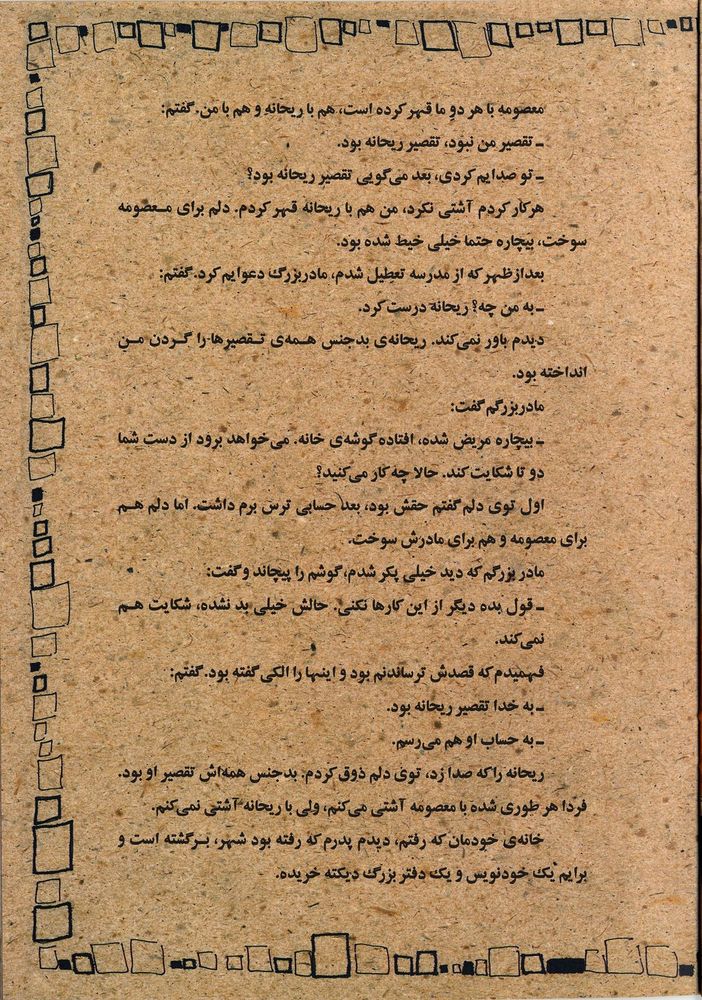 معصومه با هر دو ما قهر کرده است، هم با ریحانه و هم با من. گفتم:
ـ تقصیر من نبود، تقصیر ریحانه بود.
ـ تو صدایم کردی، بعد می‌گویی تقصیر ریحانه بود؟
هرکار کردم آشتی نکرد، من هم با ریحانه قهر کردم. دلم برای معصومه
سوخت، بیچاره حتما خیلی خیط شده بود.
بعدازظهر که از مدرسه تعطیل شدم، مادربزرگ دعوایم کرد. گفتم:
ـ به من چه؟ ریحانه درست کرد.
دیدم باور نمی‌کند. ریحانه‌ی بدجنس همه‌ی تقصیرها را گردن من
انداخته بود.
مادربزرگم گفت:
ـ بیچاره مریض شده، افتاده گوشه‌ی خانه. می‌خواهد برود از دست شما
دو تا شکایت کند. حالا چه کار می‌کنید؟
اول توی دلم گفتم حقش بود، بعد حسابی ترس برم داشت. اما دلم هم
برای معصومه و هم برای مادرش سوخت.
مادربزرگم که دید خیلی پکر شدم، گوشم را پیچاند و گفت:
ـ قول بده دیگر از این کارها نکنی. حالش خیلی بد نشده، شکایت هم
نمی‌کند.
فهمیدم که قصدش ترساندنم بود و اینها را الکی گفته بود. گفتم:
ـ به خدا تقصیر ریحانه بود.
ـ به حساب او هم می‌رسم.
ریحانه را که صدا زد، توی دلم ذوق کردم. بدجنس همه‌اش تقصیر او بود.
فردا هر طوری شده با معصومه آشتی می‌کنم، ولی با ریحانه آشتی نمی‌کنم.
خانه‌ی خودمان که رفتم، دیدم پدرم که رفته بود شهر، برگشته است و
برایم یک خودنویس و یک دفتر بزرگ دیکته خریده.